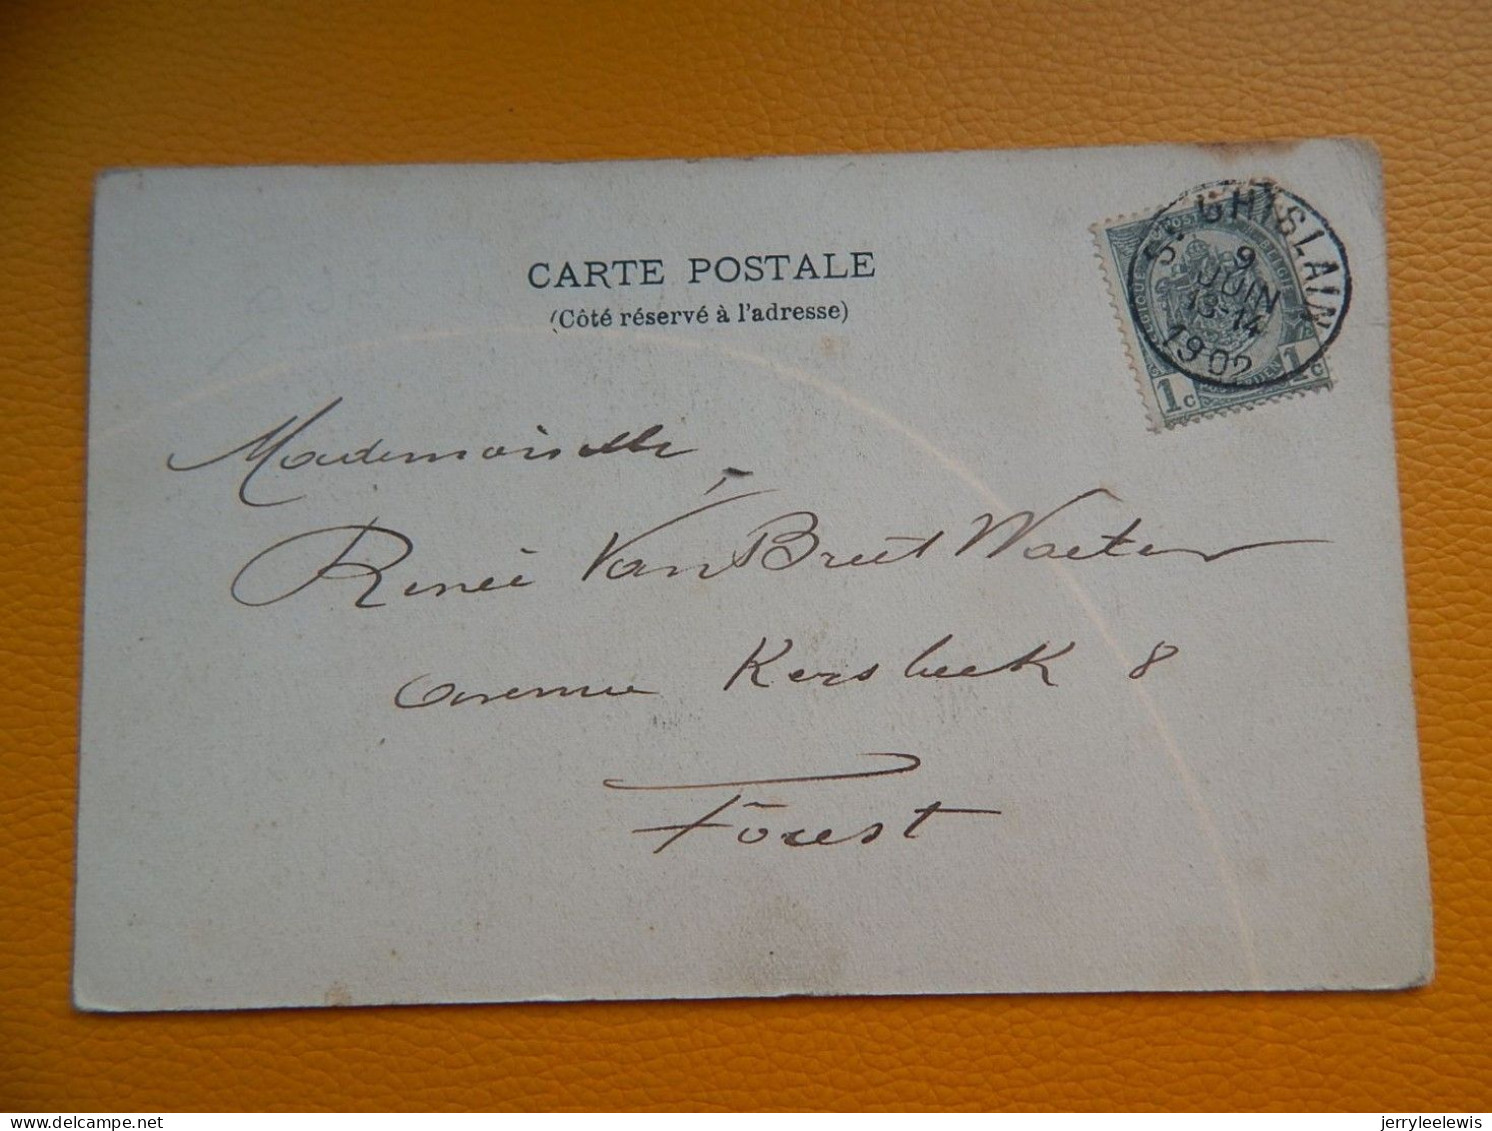 CARTE POSTALE
(Côté réservé à l'adresse)
ST GHISLAIN
9
JUIN
13-14
1902
1c 1c
Mademoiselle
Renée Van Breet Waeter
avenue Kersbeek 8
Forest
jerryleelewis
delcampe.net